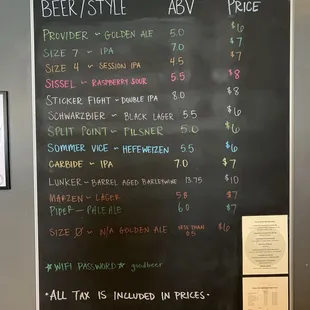 BEER/STYLE ABV PRICE
PROVIDER ~ GOLDEN ALE 5.0 $6
SIZE 7 ~ IPA 7.0 $7
SIZE 4 ~ SESSION IPA 4.5 $7
SISSEL ~ RASPBERRY SOUR 5.5 $8
STICKER FIGHT ~ DOUBLE IPA 8.0 $8
SCHWARZBIER ~ BLACK LAGER 5.5 $6
SPLIT POINT ~ PILSNER 5.0 $6
SUMMER VICE ~ HEFEWEIZEN 5.5 $6
CARBIDE ~ IPA 7.0 $7
LUNKER ~ BARREL AGED BARLEYWINE 13.75 $10
MARZEN ~ LAGER 5.8 $7
PIPER ~ PALE ALE 6.0 $7
SIZE Ø ~ N/A GOLDEN ALE LESS THAN 0.5 $6
*WIFI PASSWORD* goodbeer
*ALL TAX IS INCLUDED IN PRICES*